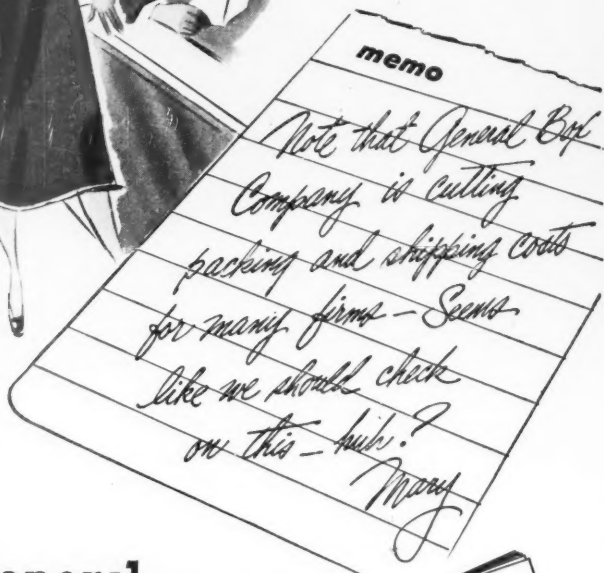 memo
Note that General Box
Company is cutting
packing and shipping costs
for many firms — Seems
like we should check
on this — huh?
Mary